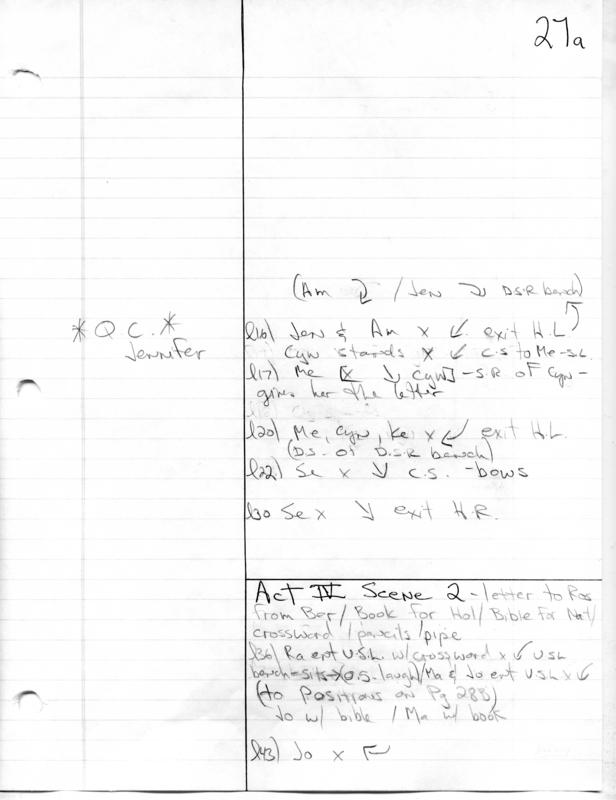 27a
(Am ↴ / Jen ↘ D.S.R bench)
*Q C.*
Jennifer
l16) Jen & Am x ↙ exit H.L.
Cyn stands x ↙ C.S to Me-S.L.
l17) Me [x ↘ Cyn] - S.R of Cyn -
gives her the letter
l20) Me, Cyn, Ke x ↙ exit H.L.
(D.S. of D.S.R bench)
l22) Se x ↘ C.S. - bows
l30 Se x ↘ exit H.R.
Act IV Scene 2 - letter to Ros
from Ber / Book for Hol / Bible for Nat /
crossword / pencils / pipe
l36) Ra ent U.S.L. w/ crossword x ↙ USL
bench - sits → (O.S. laugh) / Ma & Jo ent USL x ↙
(to positions on Pg 288)
Jo w/ bible / Ma w/ book
l43) Jo x